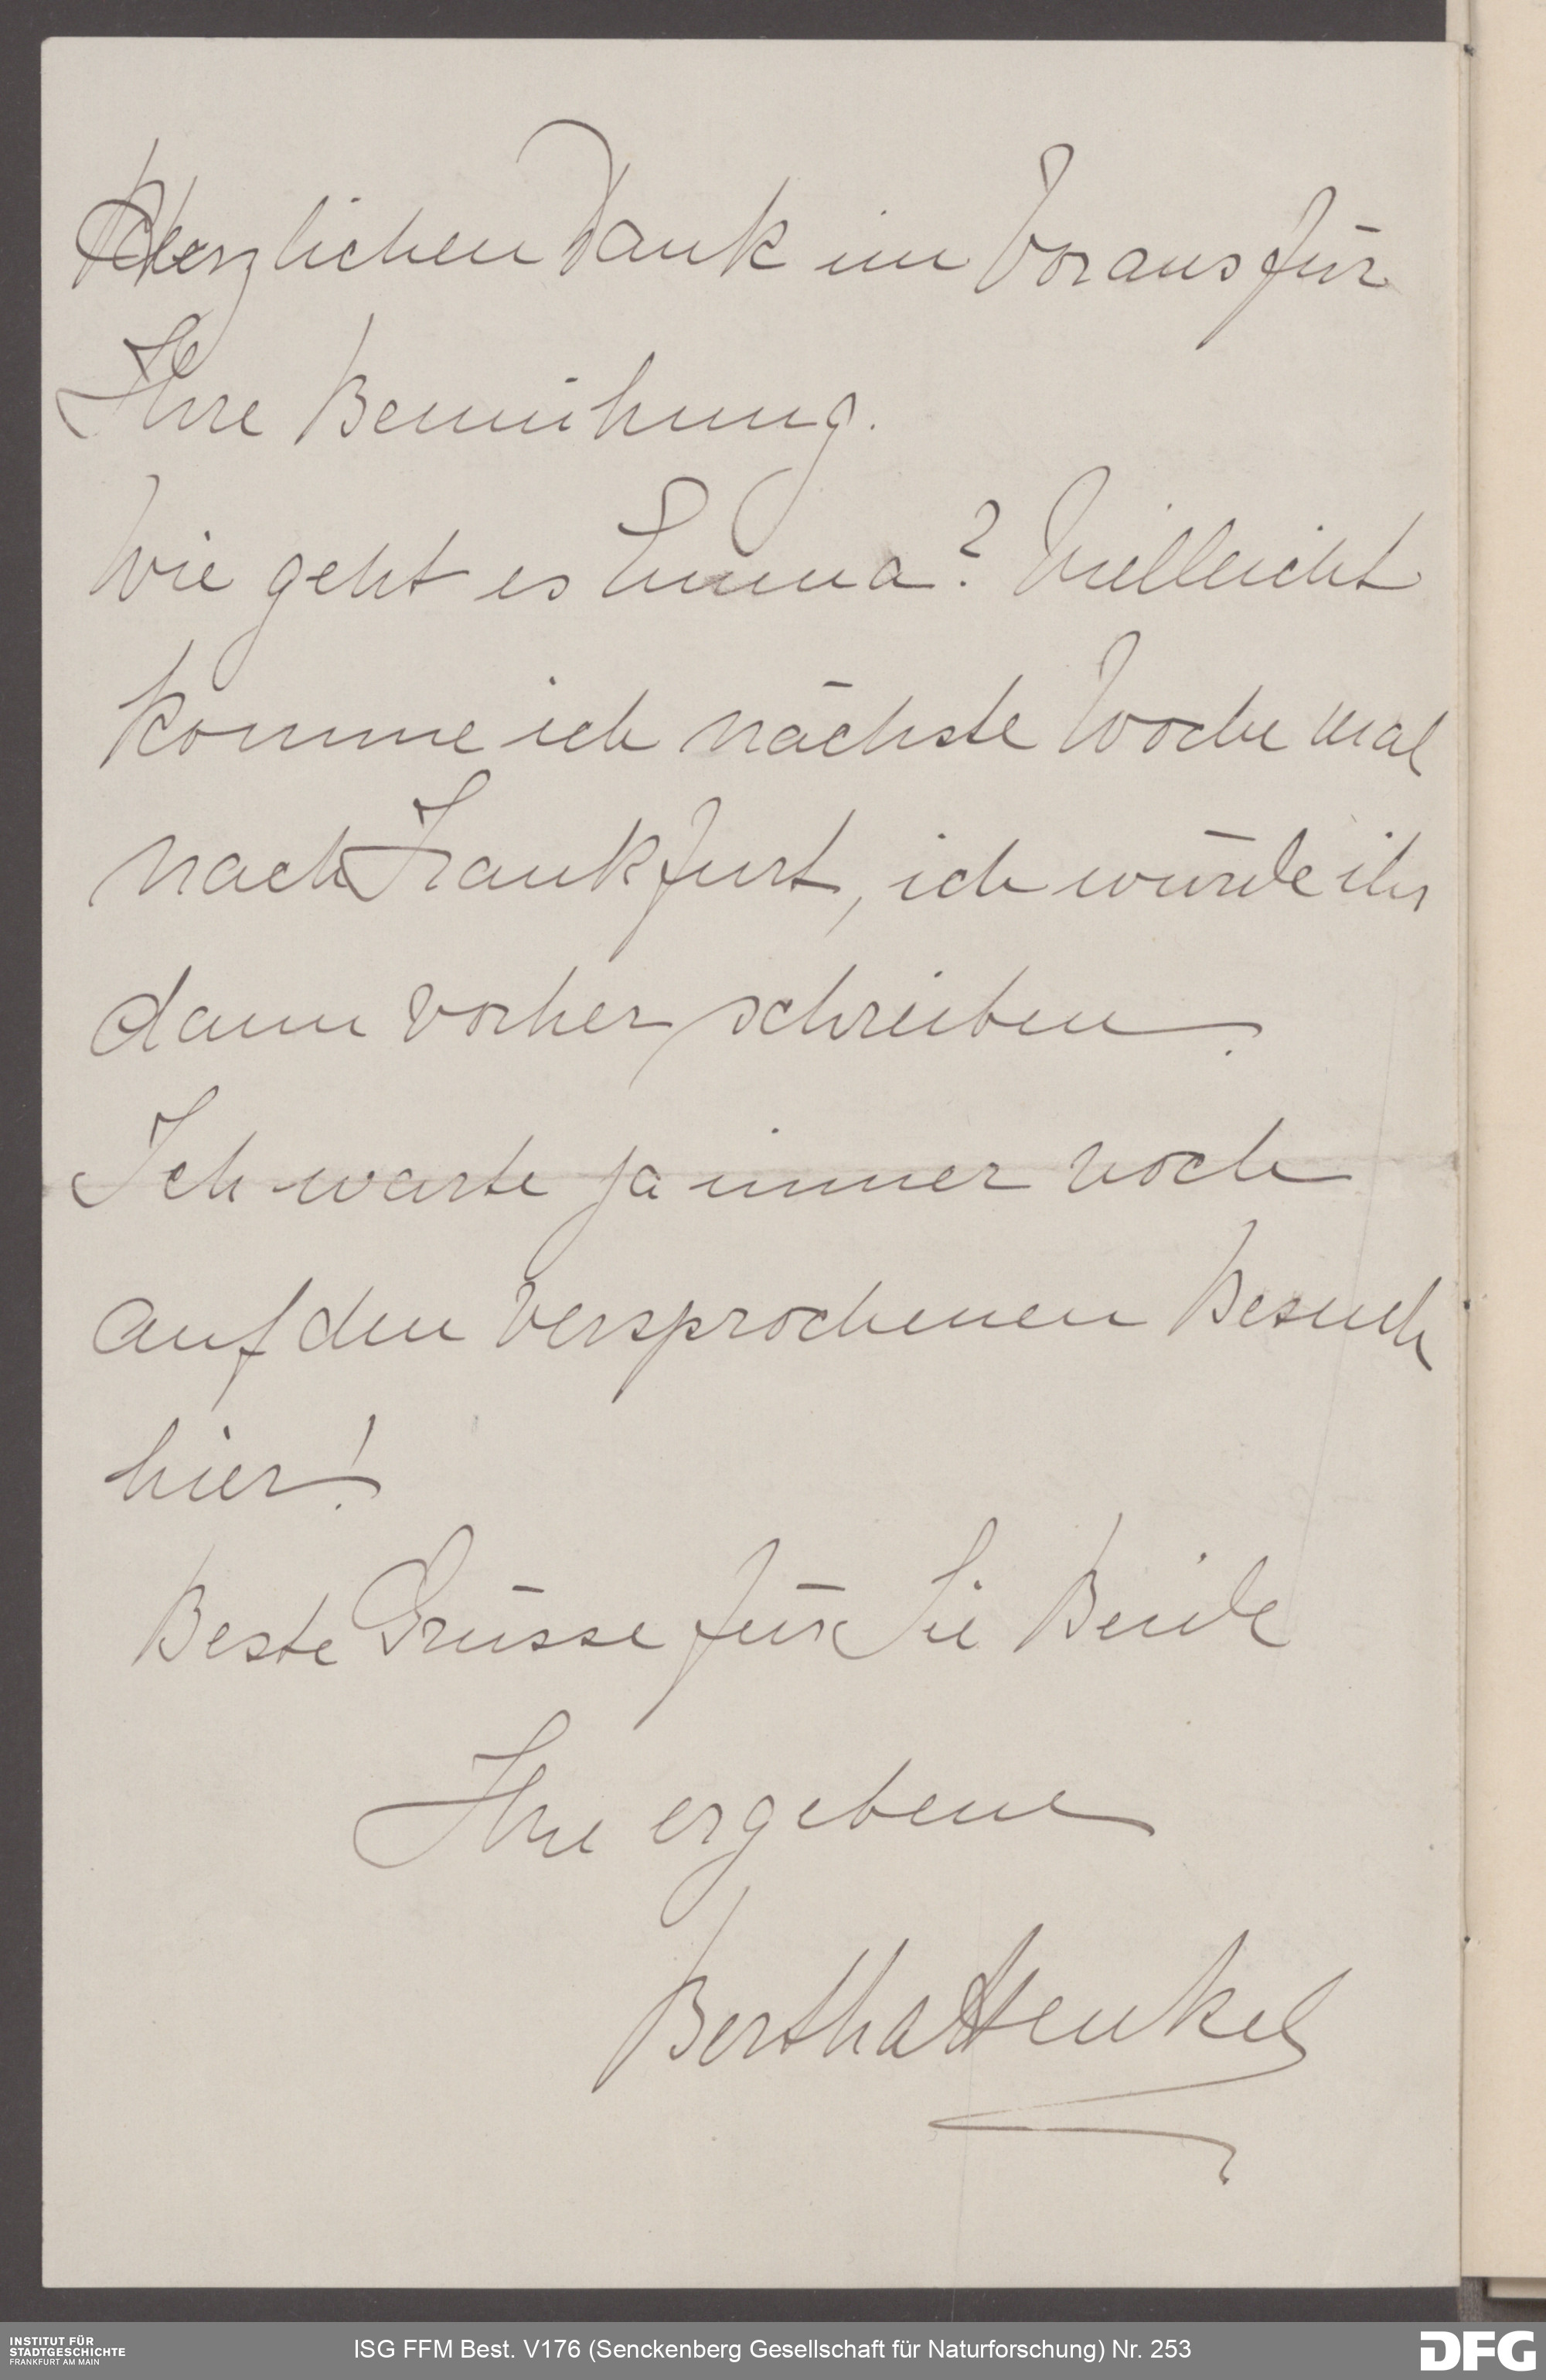 Herzlichen Dank im Voraus für
Ihre Bemühung.
Wie geht es Emma? Vielleicht
komme ich nächste Woche mal
nach Frankfurt, ich würde ihr
dann vorher schreiben.
Ich warte ja immer noch
auf den versprochenen Besuch
hier!
Beste Grüsse für Sie Beide
Ihre ergebene
Bertha Henkel
INSTITUT FÜR
STADTGESCHICHTE
FRANKFURT AM MAIN
ISG FFM Best. V176 (Senckenberg Gesellschaft für Naturforschung) Nr. 253
DFG